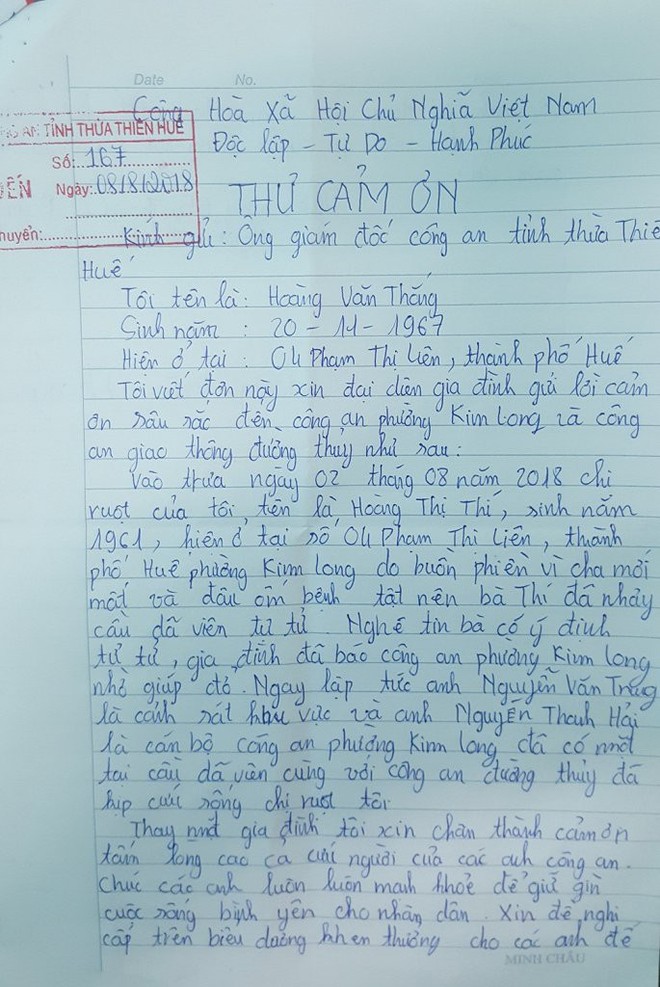 Date No.
Cộng Hoà Xã Hội Chủ Nghĩa Việt Nam
Độc lập - Tự Do - Hạnh Phúc
AN TỈNH THỪA THIÊN HUẾ
Số: 167
ĐẾN Ngày: 08/8/2018
huyển:
THƯ CẢM ƠN
Kính gủ: Ông giám đốc công an tỉnh thừa Thiê
Huế
Tôi tên là: Hoàng Văn Thắng
Sinh năm : 20 - 11 - 1967
Hiện ở tại : 04 Phạm Thị Liên, thành phố Huế
Tôi viết đơn này xin đại diện gia đình gửi lời cảm
ơn sâu sắc đến công an phường Kim Long và công
an giao thông đường thuỷ như sau:
Vào trưa ngày 02 tháng 08 năm 2018 chị
ruột của tôi tên là Hoàng Thị Thí, sinh năm
1961, hiện ở tại số 04 Phạm Thị Liên, thành
phố Huế phường Kim Long do buồn phiền vì cha mới
mất và đâu ốm bệnh tật nên bà Thí đã nhảy
cầu dã viên tự tử. Nghe tin bà có ý định
tự tử, gia đình đã báo công an phường Kim Long
nhờ giúp đỏ. Ngay lập tức anh Nguyễn Văn Trung
là cảnh sát khu vực và anh Nguyễn Thanh Hải
là cán bộ công an phường Kim Long đã có mặt
tại cầu dã viên cùng với công an đường thủy đã
kịp cứu sống chị ruột tôi
Thay mặt gia đình tôi xin chân thành cảm ơn
tấm lòng cao cả cứu người của các anh công an.
Chúc các anh luôn luôn mạnh khoẻ để giữ gìn
cuộc sống bình yên cho nhân dân. Xin đề nghị
cấp trên biểu dương khen thưởng cho các anh để
MINH CHÂU